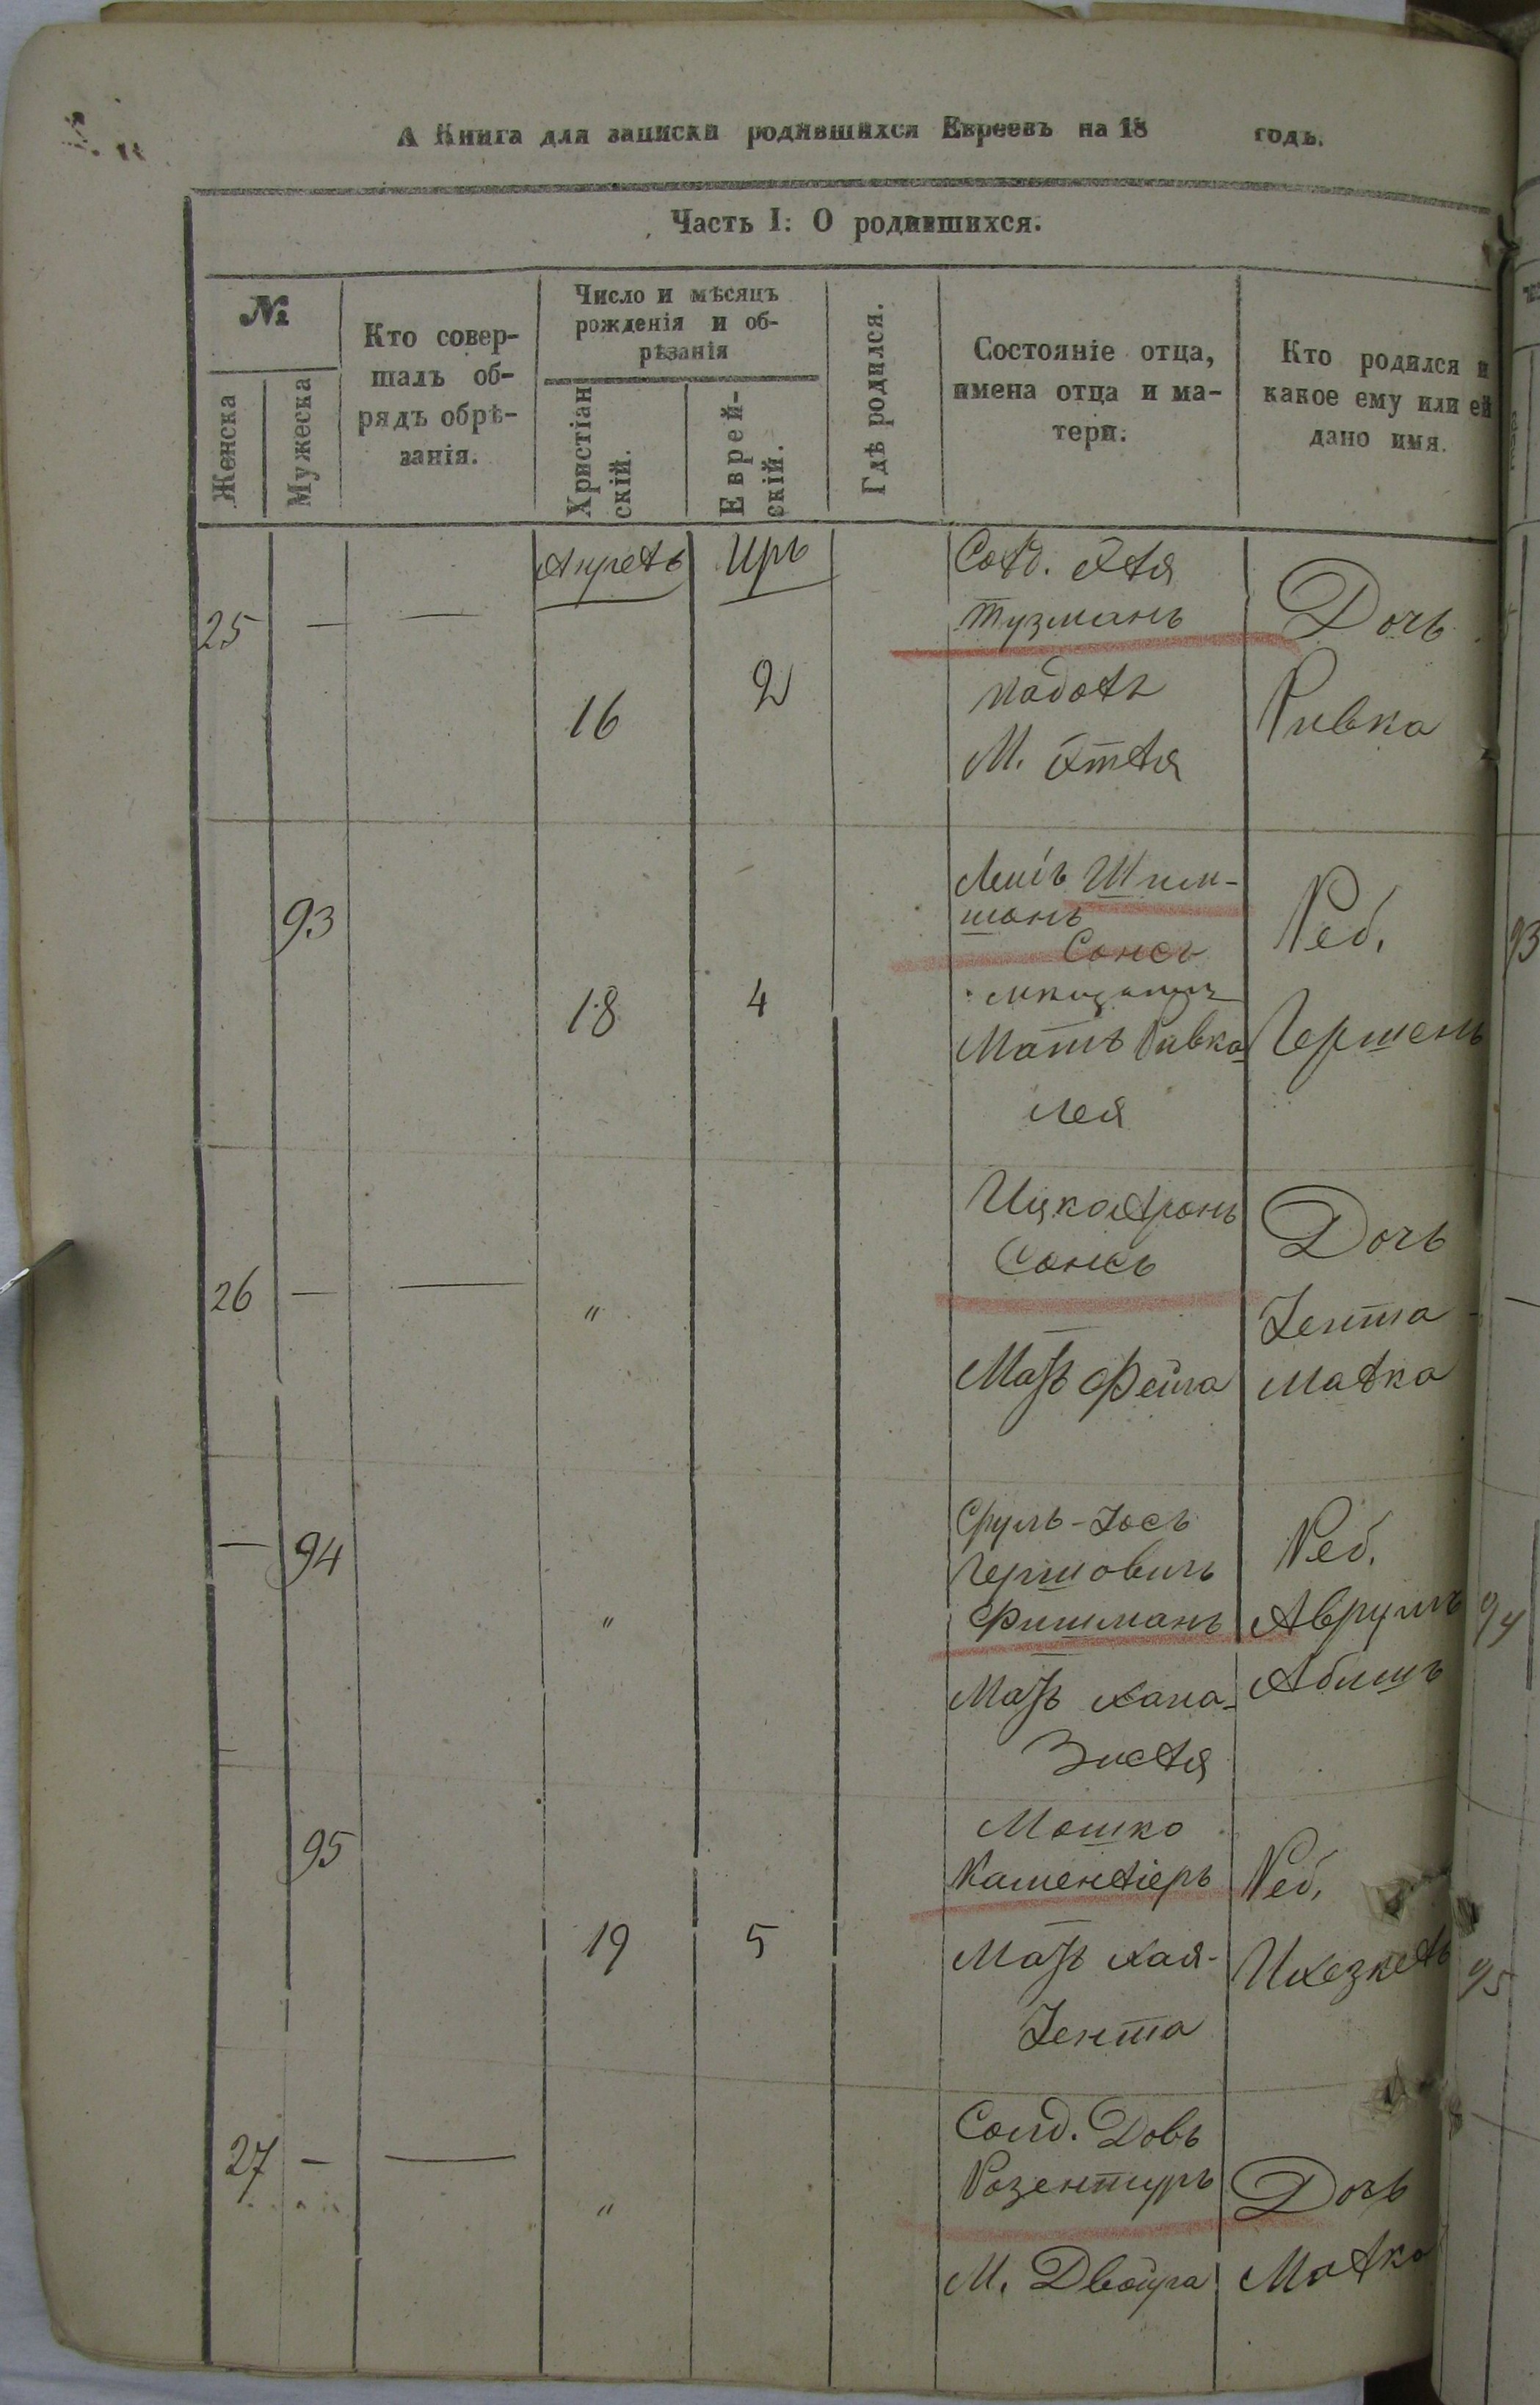 А Книга для записки родившихся Евреевъ на 18 годъ.
Часть I: О родившихся.
№
Женска
Мужеска
Кто совер-
шалъ об-
рядъ обрѣ-
занія.
Число и мѣсяцъ
рожденія и об-
рѣзанія
Христіан
скій.
Еврей-
скій.
Гдѣ родился.
Состояніе отца,
имена отца и ма-
тери.
Кто родился и
какое ему или ей
дано имя.
Апрель Иръ
25 — — 16 2
Солд. Эля
Тузманъ
М. Этля
Дочь
Ривка
93 18 4
Шим-
шонъ
Сонсъ
Мать Ривка
Лея
Реб.
Гершенъ
26 — — "
Ицко Аронъ
Сонсъ
Мать Фейга
Дочь
Іента
Малка
— 94 "
Сруль-Іосъ
Гершовичъ
Фишманъ
Мать Хана-
Зисля
Реб.
Аврумъ
Абишъ
94
95 19 5
Мошко
Каменліеръ
Мать Хая-
Іента
Реб.
Ихезкель
95
27 — — "
Солд. Довъ
Розентуръ
М. Двойра
Дочь
Малка
93